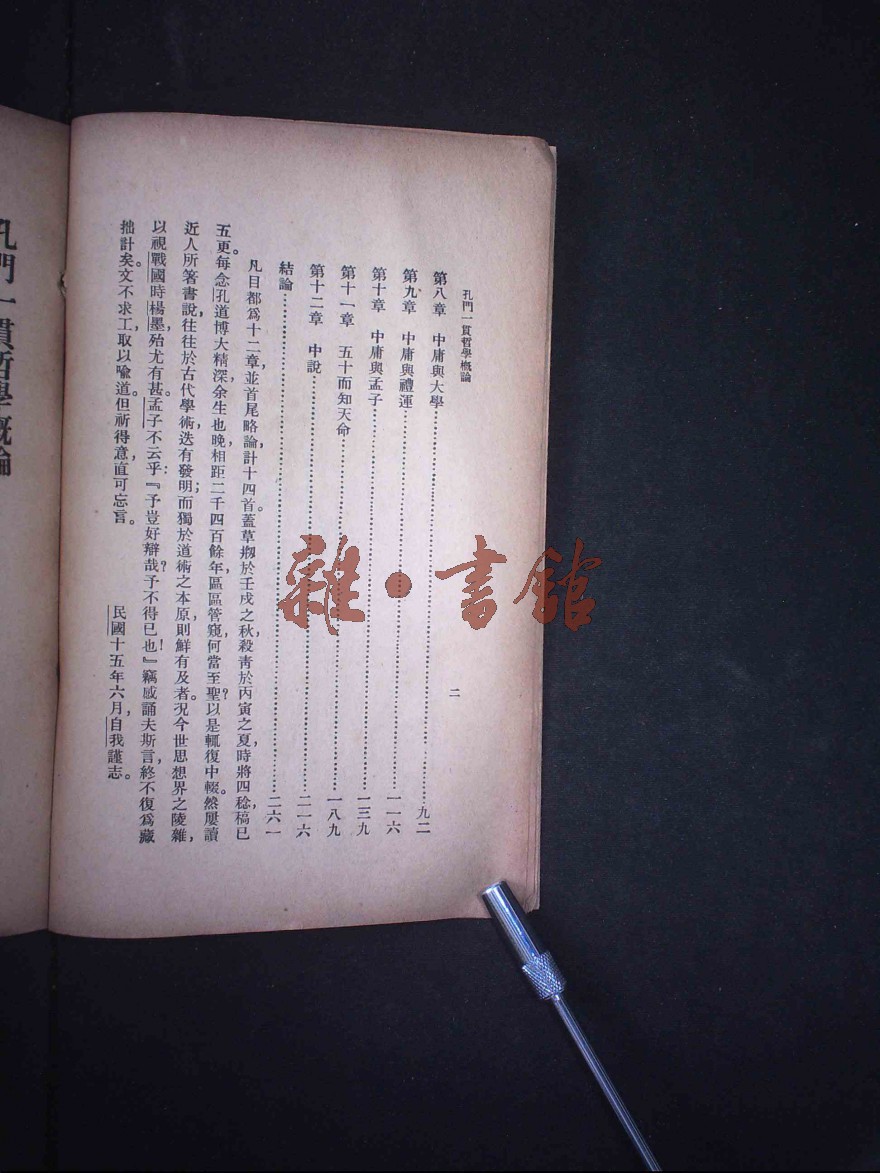 孔門一貫哲學概論
二
第八章　中庸與大學……九二
第九章　中庸與禮運……一一六
第十章　中庸與孟子……一三九
第十一章　五十而知天命……一八九
第十二章　中說……二一六
結論……二六一
凡目都爲十二章，並首尾略論計十四首。蓋草剏於壬戌之秋，殺靑於丙寅之夏，時將四稔，稿已
五更。每念孔道博大精深，余生也晚，相距二千四百餘年，區區管窺，何當至聖？以是輒復中輟。然屢讀
近人所箸書說，往往於古代學術，迭有發明；而獨於道術之本原，則鮮有及者。況今世思想界之陵雜，
以視戰國時楊墨，殆尤有甚。孟子不云乎：『予豈好辯哉？予不得已也！』竊感誦夫斯言，終不復爲藏
拙計矣。文不求工，取以喩道。但祈得意，直可忘言。
民國十五年六月，自我謹志。
孔門一貫哲學概論
雜·書館